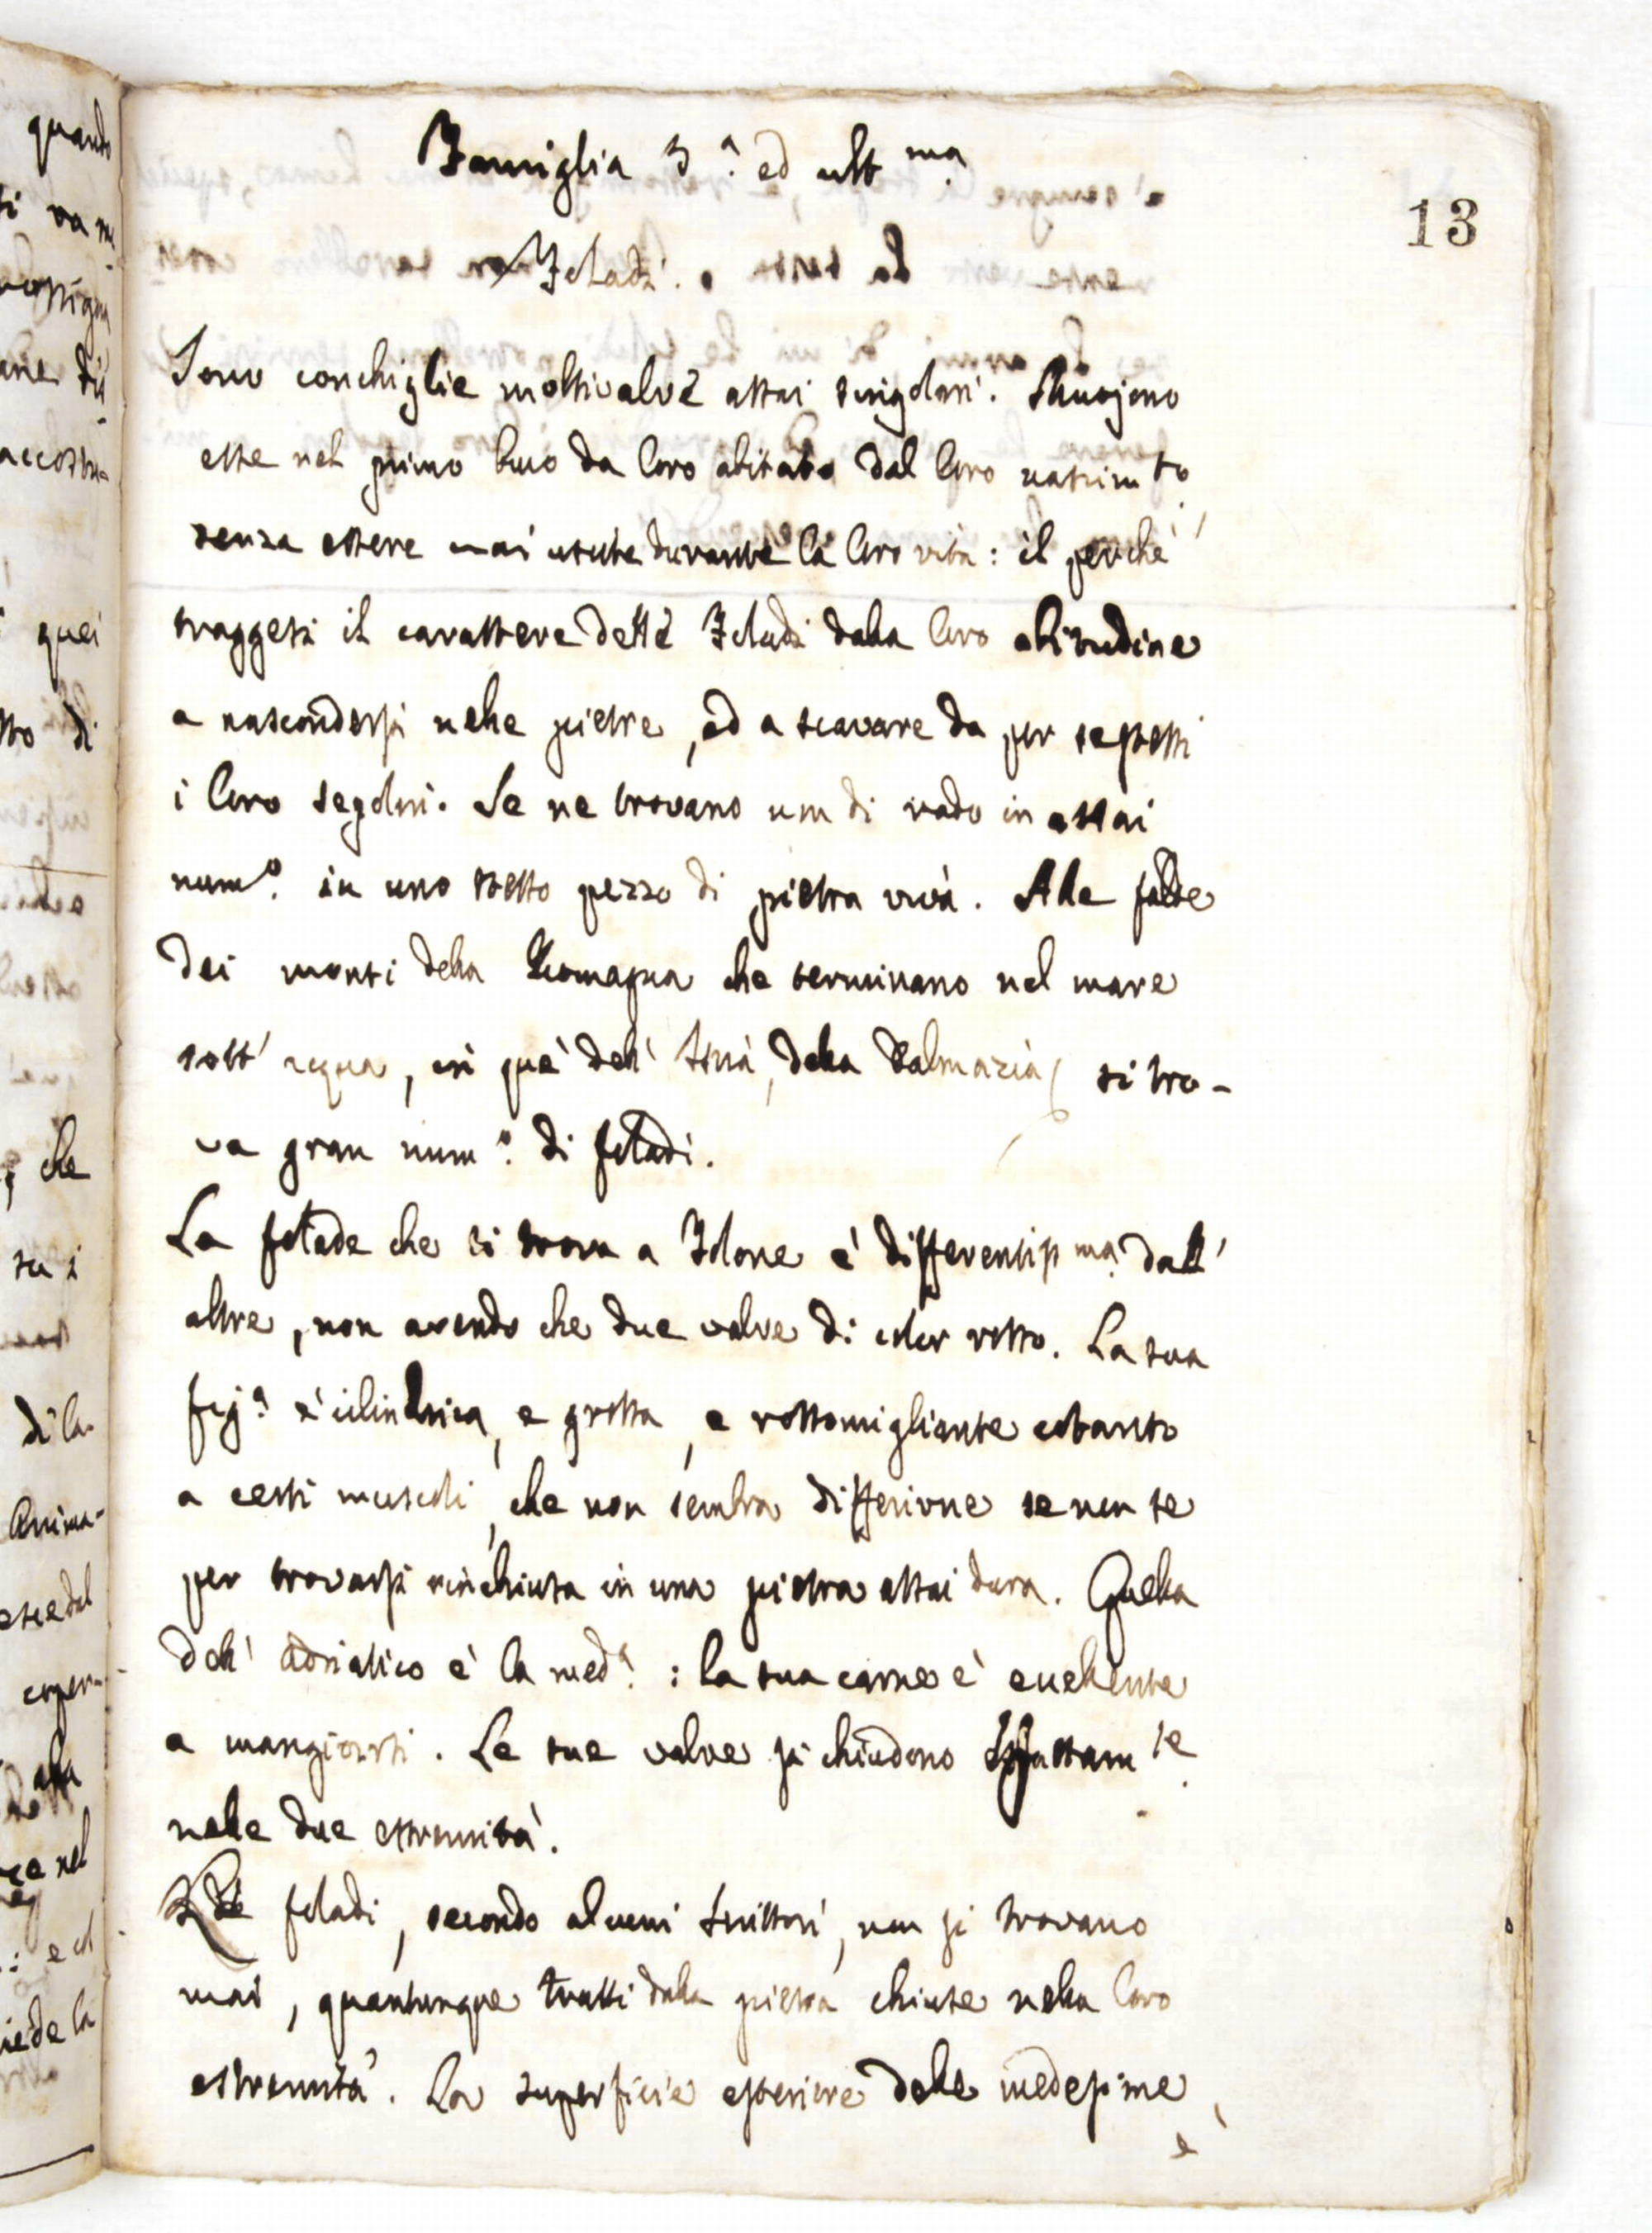 13
Famiglia 3.ª ed ult.ma
Foladi.
Sono conchiglie moltivalve assai singolari. Muojono
esse nel primo buco da loro abitato dal loro nascim.to
senza essere mai uscite durante la loro vita: il perchè
traggesi il carattere delle Foladi dalla loro abitudine
a nascondersi nelle pietre, ed a scavare da per sestessi
i loro segolari. Se ne trovano non di rado in assai
num.º in uno stesso pezzo di pietra viva. Alle falde
dei monti della Romagna che terminano nel mare
sott' acqua, in que' dell' Istria, della Dalmazia si tro-
va gran num.º di foladi.
La folade che si trova a Tolone è differentiss.ma dall'
altre, non avendo che due valve di color rosso. La sua
fig.ª è cilindrica, e grossa, e rossomigliante cotanto
a certi muscoli, che non sembra differirne se non se
per trovarsi rinchiusa in una pietra assai dura. Quella
dell' Adriatico è la med.ª: la sua carne è eccellente
a mangiarsi. Le sue valve si chiudono esattam.te
nelle due estremità.
Le foladi, secondo alcuni scrittori, non si trovano
mai, quantunque tratti dalla pietra chiuse nella loro
estremità. La superficie esteriore delle medesime
è
quando
si va
ane di
accostu-
quei
di
che
su i
di la-
Anima-
esce dal
coper-
alla
ce nel
: e il
iede la